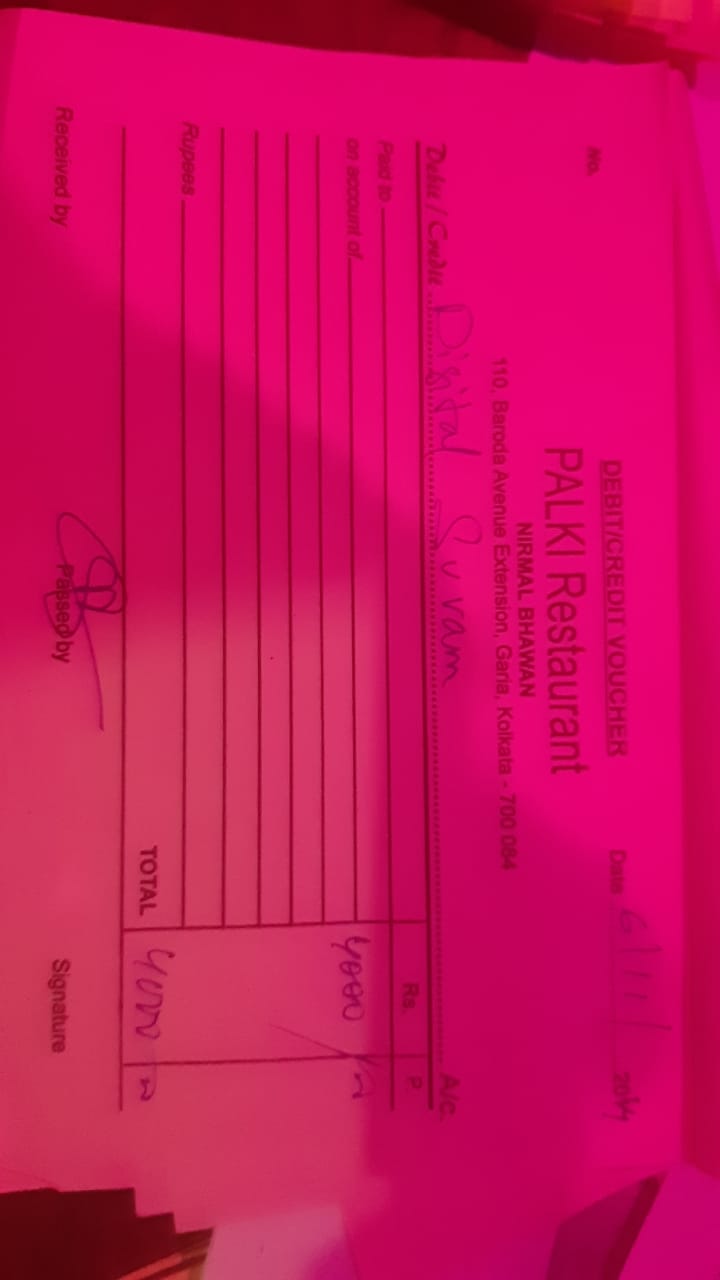 DEBIT/CREDIT VOUCHER
No.
Date 6/11/ 2014
PALKI Restaurant
NIRMAL BHAWAN
110, Baroda Avenue Extension, Garia, Kolkata - 700 084
Debit / Credit Digital Suvam A/c.
Rs. P.
Paid to
on account of 4000
Rupees
TOTAL 4000
Received by Passed by Signature